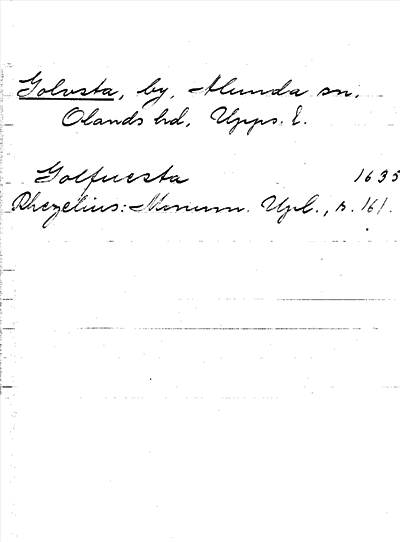 Golvsta, by, Alunda sn,
Olands hd, Upps. l.
Golfuesta 1635
Rhezelius: Monum. Upl., s. 161.